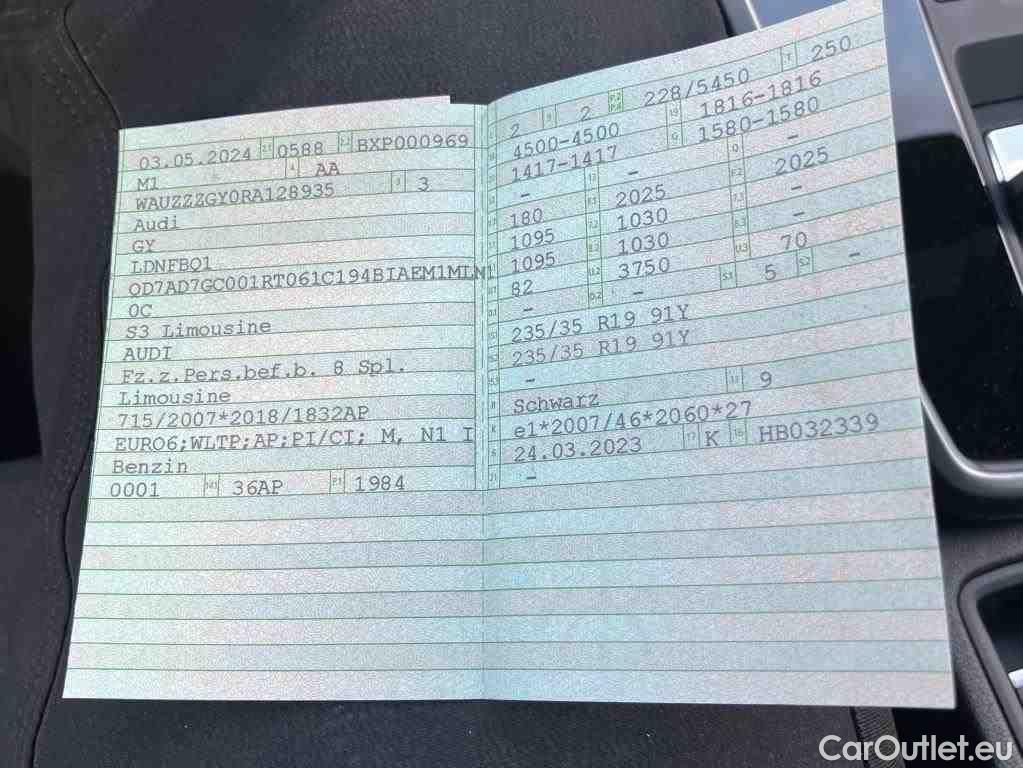 03.05.2024 2.1 0588 2.2 BXP000969
M1 4 AA
WAUZZZGY0RA128935 3 3
Audi
GY
LDNFBQ1
QD7AD7GC001RT061C194BIAEM1MLN1
0C
S3 Limousine
AUDI
Fz.z.Pers.bef.b. 8 Spl.
Limousine
715/2007*2018/1832AP
EURO6;WLTP;AP;PI/CI; M, N1 I
Benzin
0001 36AP P.1 1984
2 9 2 P.2 P.4 228/5450 T 250
4500-4500 19 1816-1816
1417-1417 G 1580-1580
- - -
180 F.1 2025 F.2 2025
1095 7.2 1030 7.3 -
1095 8.2 1030 8.3 -
82 U.2 3750 U.3 70
- - S.1 5 S.2 -
235/35 R19 91Y
235/35 R19 91Y
-
R Schwarz 11 9
K e1*2007/46*2060*27
6 24.03.2023 17 K 16 HB032339
21 -
CarOutlet.eu